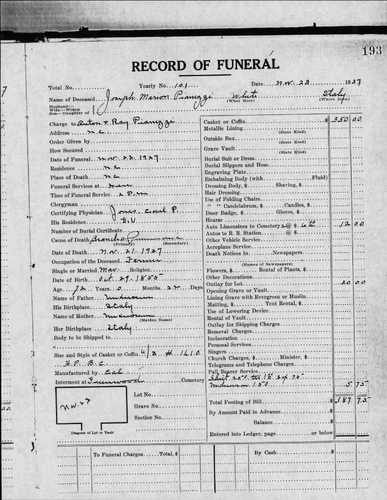 193
RECORD OF FUNERAL
Total No. Yearly No. 101 Date Nov. 23 1927
Name of Deceased Joseph Marion Pianizzi White Italy
(What Race) (Where Born)
Husband—
Wife—Widow
Son—Daughter of
Charge to Anton & Ray Pianizzi
Address N.C.
Order Given by
How Secured
Date of Funeral Nov. 22. 1927
Residence N.C.
Place of Death N.C.
Funeral Services at
Time of Funeral Service 2. P.m
Clergyman
Certifying Physician Jones, Earl P.
His Residence
Number of Burial Certificate
Cause of Death Broncho Pneumonia
(Primary) (Secondary)
Date of Death Nov. 21 1927
Occupation of Deceased
Single or Married Mar. Religion
Date of Birth Oct 29. 1855
Age 72 Years 0 Months 22 Days
Name of Father Unknown
His Birthplace Italy
Name of Mother Unknown
(Maiden Name)
Her Birthplace Italy
Body to be Shipped to
Size and Style of Casket or Coffin 6/3 # 1410
Manufactured by
Interment at Cemetery
N.W. 27
Lot No.
Grave No.
Section No.
Diagram of Lot or Vault
Casket or Coffin $ 350 00
Metallic Lining
(State Kind)
Outside Box
(State Kind)
Grave Vault
(State Kind)
Burial Suit or Dress
Burial Slippers and Hose
Engraving Plate
Embalming Body (with Fluid)
Dressing Body, $ Shaving, $
Hair Dressing
Use of Folding Chairs
" " Candelabrum, $ Candles, $
Door Badge, $ Gloves, $
Hearse
Auto Limousines to Cemetery 2 @ $ 6 00 12 00
Autos to R. R. Station @ $
Other Vehicle Service
Aeroplane Service
Death Notices in Newspapers
(Names of Newspapers)
Flowers, $ Rental of Plants, $
Other Decorations
Outlay for Lot 20 00
Opening Grave or Vault
Lining Grave with Evergreen or Muslin
Matting, $ Tent Rental, $
Use of Lowering Device
Rental of Vault
Outlay for Shipping Charges
Removal Charges
Incineration
Personal Services
Singers
Church Charges, $ Minister, $
Telegrams and Telephone Charges
Pall Bearer Service
5 75
Total Footing of Bill $ 387 75
By Amount Paid in Advance
Balance
Entered into Ledger, page or below
To Funeral Charges. Total $
By Cash $